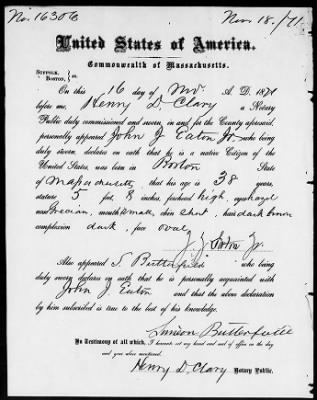 No. 16306 Nov. 18./71
United States of America.
Commonwealth of Massachusetts.
SUFFOLK,
BOSTON, } ss.
On this 16 day of Nov. A. D. 1871
before me, Henry D. Clary a Notary
Public duly commissioned and sworn, in and for the County aforesaid,
personally appeared John J Eaton Jr. who being
duly sworn, declares on oath that he is a native Citizen of the
United States, was born in Boston State
of Massachusetts that his age is 38 years,
stature 5 feet, 8 inches, forehead high, eyes hazel
nose Grecian, mouth small, chin short, hair dark brown
complexion dark, face oval
J. J. Eaton Jr.
Also appeared S. Butterfield who being
duly sworn declares on oath that he is personally acquainted with
John J. Eaton and that the above declaration
by him subscribed is true to the best of his knowledge.
Simeon Butterfield
In Testimony of all which, I hereunto set my hand and seal of office on the day
and year above mentioned.
Henry D. Clary Notary Public.